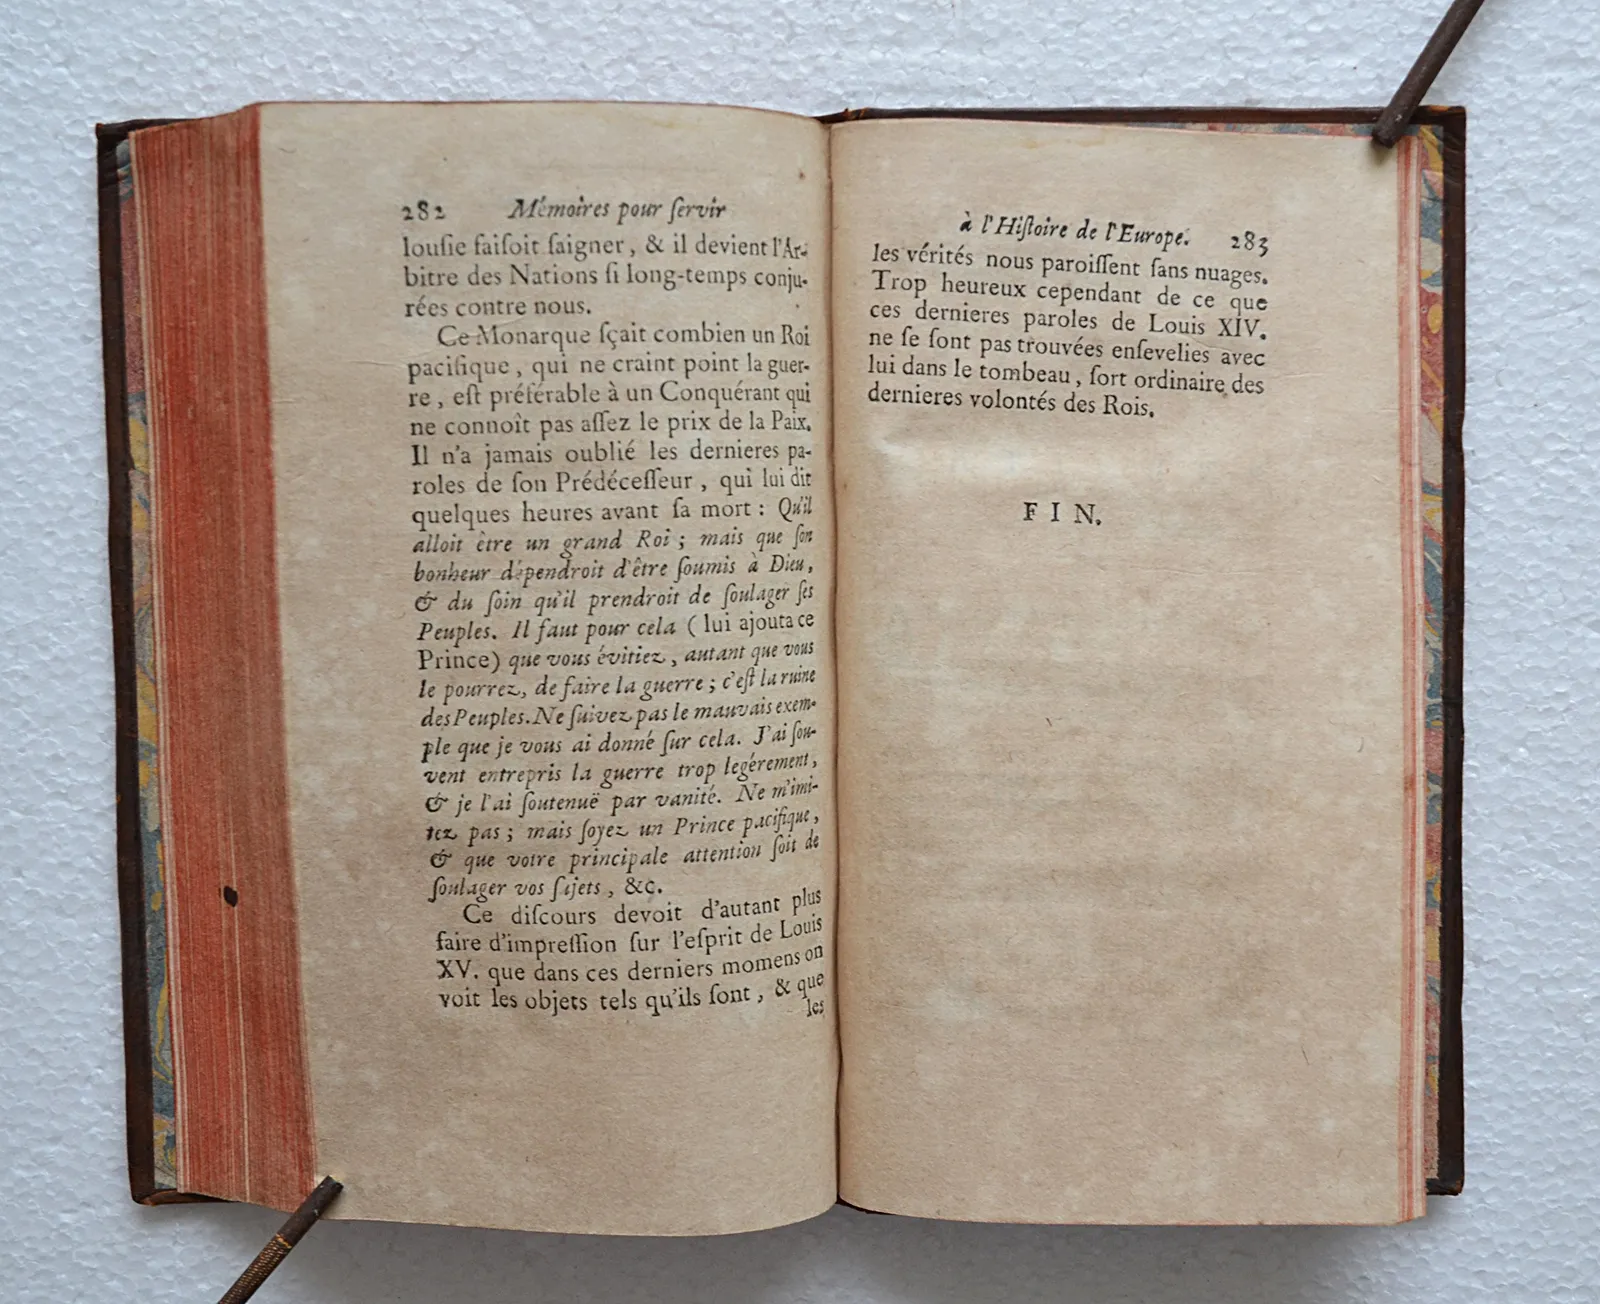 282 Mémoires pour ſervir
louſie faiſoit ſaigner, & il devient l'Ar-
bitre des Nations ſi long-temps conju-
rées contre nous.
Ce Monarque ſçait combien un Roi
pacifique, qui ne craint point la guer-
re, eſt préférable à un Conquérant qui
ne connoît pas aſſez le prix de la Paix.
Il n'a jamais oublié les dernieres pa-
roles de ſon Prédéceſſeur, qui lui dit
quelques heures avant ſa mort : Qu'il
alloit être un grand Roi ; mais que ſon
bonheur dépendroit d'être ſoumis à Dieu,
& du ſoin qu'il prendroit de ſoulager ſes
Peuples. Il faut pour cela ( lui ajouta ce
Prince) que vous évitiez, autant que vous
le pourrez, de faire la guerre ; c'eſt la ruine
des Peuples. Ne ſuivez pas le mauvais exem-
ple que je vous ai donné ſur cela. J'ai ſou-
vent entrepris la guerre trop legérement,
& je l'ai ſoutenuë par vanité. Ne m'imi-
tez pas ; mais ſoyez un Prince pacifique,
& que votre principale attention ſoit de
ſoulager vos ſujets, &c.
Ce diſcours devoit d'autant plus
faire d'impreſſion ſur l'eſprit de Louis
XV. que dans ces derniers momens on
voit les objets tels qu'ils ſont, & que
les
à l'Hiſtoire de l'Europe. 283
les vérités nous paroiſſent ſans nuages.
Trop heureux cependant de ce que
ces dernieres paroles de Louis XIV.
ne ſe ſont pas trouvées enſevelies avec
lui dans le tombeau, ſort ordinaire des
dernieres volontés des Rois.
FIN.